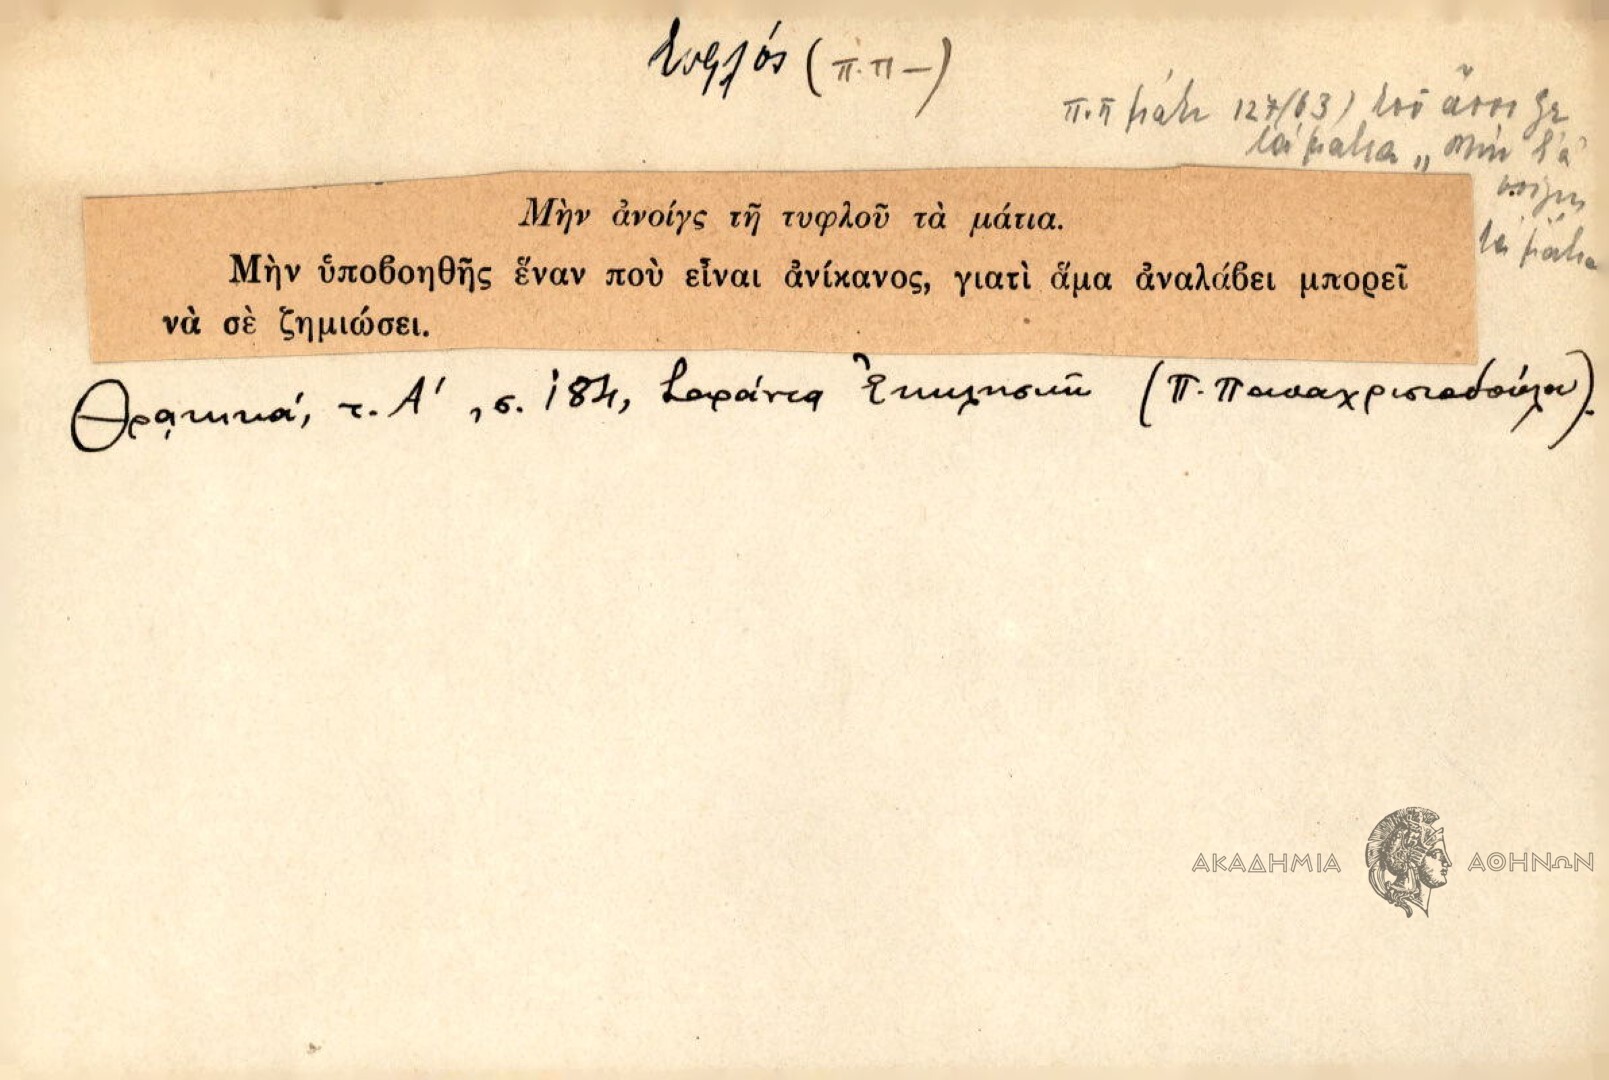 τυφλός (π.π —)
π.π μάτι 127 (63) τοῦ ἄνοιξε
τά μάτια
τά μάτια
Μὴν ἀνοίγς τῆ τυφλοῦ τὰ μάτια.
Μὴν ὑποβοηθῆς ἕναν ποὺ εἶναι ἀνίκανος, γιατὶ ἅμα ἀναλάβει μπορεῖ
νὰ σὲ ζημιώσει.
Θρακικά, τ. Α΄, σ. 184, Σαράντα Ἐκκλησιῶν (Π. Παπαχριστοδούλου).
ΑΚΑΔΗΜΙΑ ΑΘΗΝΩΝ